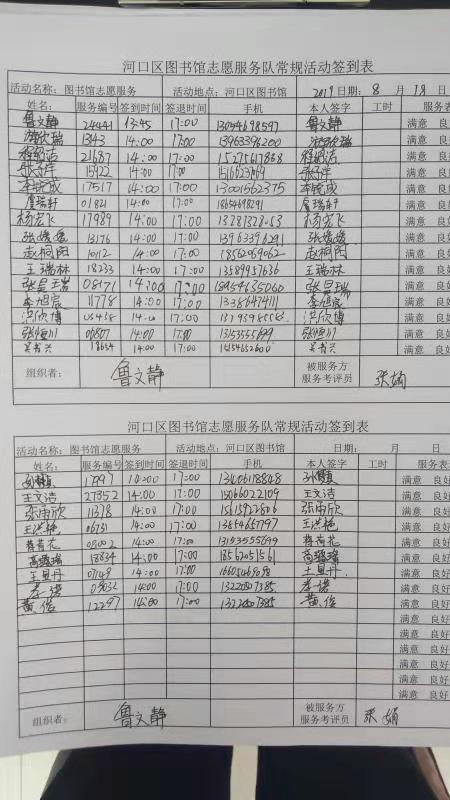 河口区图书馆志愿服务队常规活动签到表
活动名称：图书馆志愿服务 活动地点：河口区图书馆 2019 日期：8 月 18 日
姓名： 服务编号 签到时间 签退时间 手机 本人签字 工时 服务表
鲁文静 24441 13:45 17:00 13054698597 鲁文静 满意 良好
1343 14:00 17:00 13963398200 满意 良好
21687 14:00 17:00 15275617888 满意 良好
张子洋 15922 14:00 17:00 张子洋 满意 良好
17517 14:00 17:00 13001562375 满意 良好
01821 14:00 17:00 18654698291 满意 良好
杨宏飞 17989 14:00 17:00 杨宏飞 满意 良好
张媛媛 13176 14:00 17:00 13963396291 张媛媛 满意 良好
赵桐阳 10112 14:00 17:00 18562069062 赵桐阳 满意 良好
王瑞林 18233 14:00 17:00 13589957636 王瑞林 满意 良好
张昌瑞 08171 14:00 17:00 18954635060 张昌瑞 满意 良好
李旭辰 11778 14:00 17:00 李旭辰 满意 良好
洪欣博 14:00 17:00 洪欣博 满意 良好
张恒川 00807 14:00 17:00 张恒川 满意 良好
18654 14:00 17:00 满意 良好
组织者： 鲁文静 被服务方
服务考评员 张娟
河口区图书馆志愿服务队常规活动签到表
活动名称：图书馆志愿服务 活动地点：河口区图书馆 日期： 月 日
姓名： 服务编号 签到时间 签退时间 手机 本人签字 工时 服务表
17997 14:00 17:00 13406188848 满意 良好
王文洁 27852 14:00 17:00 15066022109 王文洁 满意 良好
张雨欣 11378 14:00 17:00 张雨欣 满意 良好
王洪艳 06731 14:00 17:00 王洪艳 满意 良好
蒋荷花 08002 14:00 17:00 13153555699 蒋荷花 满意 良好
高璐瑶 18834 14:00 17:00 18562051561 高璐瑶 满意 良好
王星丹 07149 14:00 17:00 王星丹 满意 良好
李诺 03032 14:00 17:00 李诺 满意 良好
黄俊 12297 14:00 17:00 黄俊 满意 良好
满意 良好
满意 良好
满意 良好
满意 良好
满意 良好
满意 良好
组织者： 鲁文静 被服务方
服务考评员 张娟